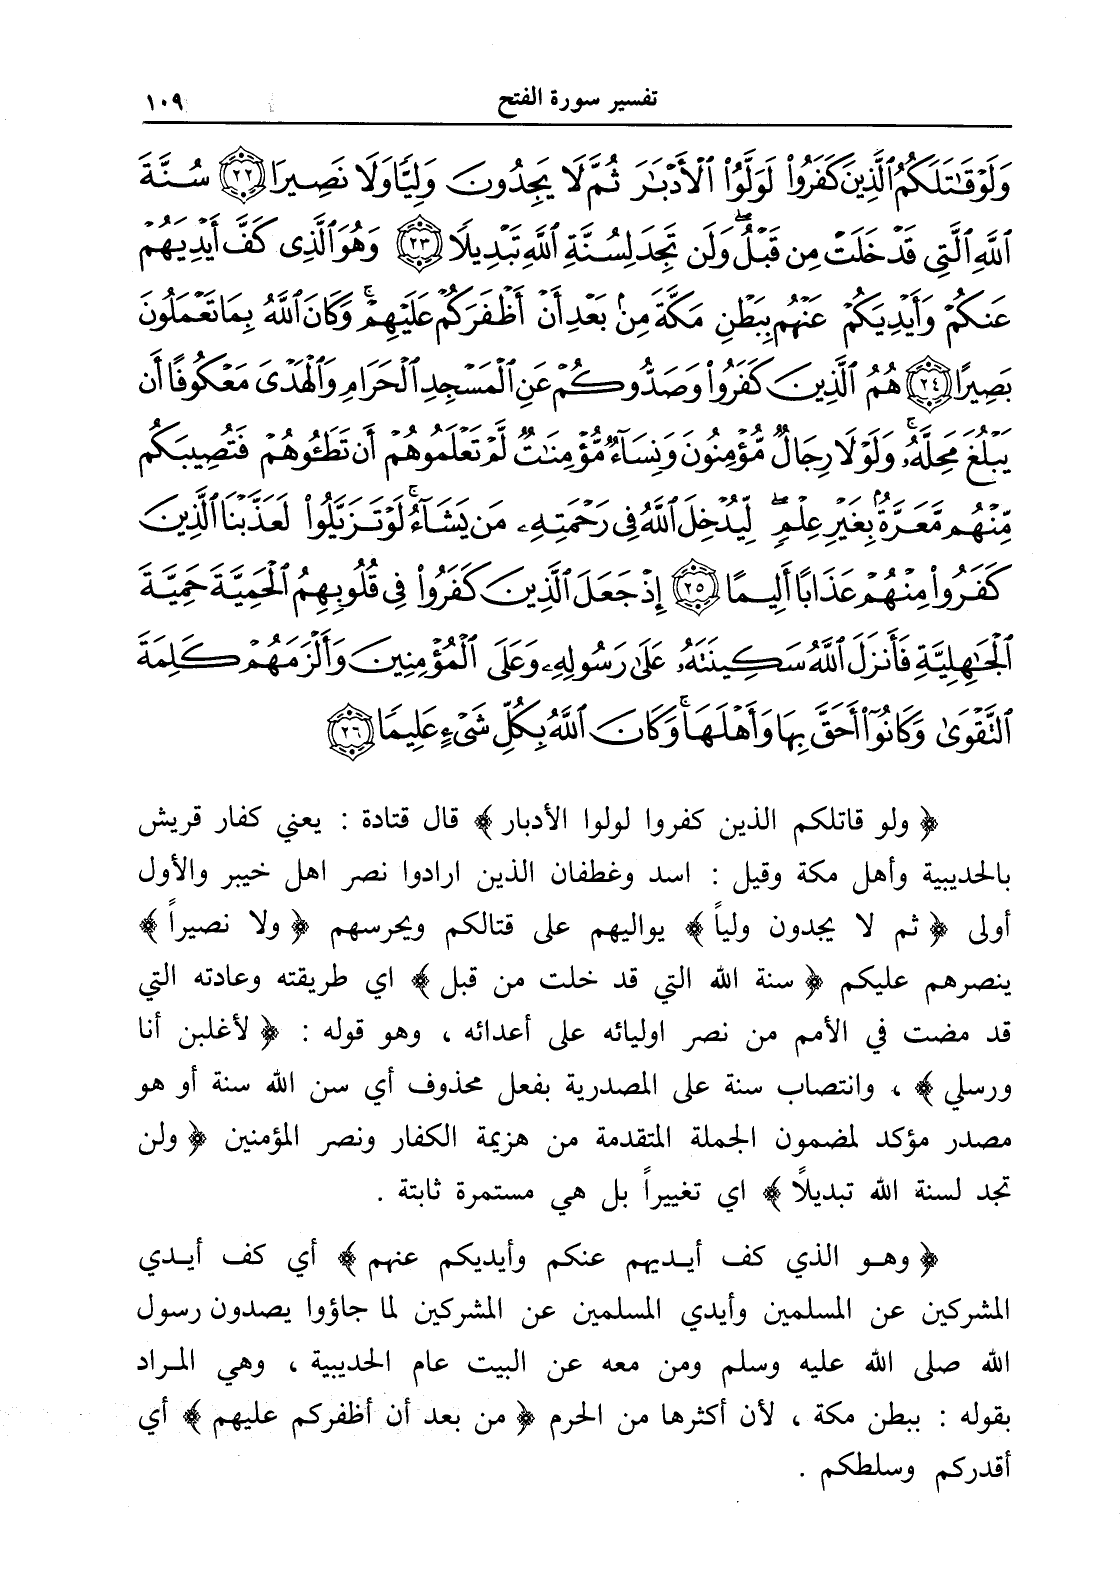 تفسير سورة الفتح ١٠٩
وَلَوْ قَٰتَلَكُمُ ٱلَّذِينَ كَفَرُوا۟ لَوَلَّوُا۟ ٱلْأَدْبَٰرَ ثُمَّ لَا يَجِدُونَ وَلِيًّا وَلَا نَصِيرًا ﴿٢٢﴾ سُنَّةَ
ٱللَّهِ ٱلَّتِى قَدْ خَلَتْ مِن قَبْلُ ۖ وَلَن تَجِدَ لِسُنَّةِ ٱللَّهِ تَبْدِيلًا ﴿٢٣﴾ وَهُوَ ٱلَّذِى كَفَّ أَيْدِيَهُمْ
عَنكُمْ وَأَيْدِيَكُمْ عَنْهُم بِبَطْنِ مَكَّةَ مِنۢ بَعْدِ أَنْ أَظْفَرَكُمْ عَلَيْهِمْ ۚ وَكَانَ ٱللَّهُ بِمَا تَعْمَلُونَ
بَصِيرًا ﴿٢٤﴾ هُمُ ٱلَّذِينَ كَفَرُوا۟ وَصَدُّوكُمْ عَنِ ٱلْمَسْجِدِ ٱلْحَرَامِ وَٱلْهَدْىَ مَعْكُوفًا أَن
يَبْلُغَ مَحِلَّهُۥ ۚ وَلَوْلَا رِجَالٌ مُّؤْمِنُونَ وَنِسَآءٌ مُّؤْمِنَٰتٌ لَّمْ تَعْلَمُوهُمْ أَن تَطَـُٔوهُمْ فَتُصِيبَكُم
مِّنْهُم مَّعَرَّةٌۢ بِغَيْرِ عِلْمٍ ۖ لِّيُدْخِلَ ٱللَّهُ فِى رَحْمَتِهِۦ مَن يَشَآءُ ۚ لَوْ تَزَيَّلُوا۟ لَعَذَّبْنَا ٱلَّذِينَ
كَفَرُوا۟ مِنْهُمْ عَذَابًا أَلِيمًا ﴿٢٥﴾ إِذْ جَعَلَ ٱلَّذِينَ كَفَرُوا۟ فِى قُلُوبِهِمُ ٱلْحَمِيَّةَ حَمِيَّةَ
ٱلْجَٰهِلِيَّةِ فَأَنزَلَ ٱللَّهُ سَكِينَتَهُۥ عَلَىٰ رَسُولِهِۦ وَعَلَى ٱلْمُؤْمِنِينَ وَأَلْزَمَهُمْ كَلِمَةَ
ٱلتَّقْوَىٰ وَكَانُوٓا۟ أَحَقَّ بِهَا وَأَهْلَهَا ۚ وَكَانَ ٱللَّهُ بِكُلِّ شَىْءٍ عَلِيمًا ﴿٢٦﴾
﴿ ولو قاتلكم الذين كفروا لولوا الأدبار ﴾ قال قتادة : يعني كفار قريش
بالحديبية وأهل مكة وقيل : اسد وغطفان الذين ارادوا نصر اهل خيبر والأول
أولى ﴿ ثم لا يجدون ولياً ﴾ يواليهم على قتالكم ويحرسهم ﴿ ولا نصيراً ﴾
ينصرهم عليكم ﴿ سنة الله التي قد خلت من قبل ﴾ اي طريقته وعادته التي
قد مضت في الأمم من نصر اوليائه على أعدائه ، وهو قوله : ﴿ لأغلبن أنا
ورسلي ﴾ ، وانتصاب سنة على المصدرية بفعل محذوف أي سن الله سنة أو هو
مصدر مؤكد لمضمون الجملة المتقدمة من هزيمة الكفار ونصر المؤمنين ﴿ ولن
تجد لسنة الله تبديلاً ﴾ اي تغييراً بل هي مستمرة ثابتة .
﴿ وهو الذي كف أيديهم عنكم وأيديكم عنهم ﴾ أي كف أيدي
المشركين عن المسلمين وأيدي المسلمين عن المشركين لما جاؤوا يصدون رسول
الله صلى الله عليه وسلم ومن معه عن البيت عام الحديبية ، وهي المراد
بقوله : ببطن مكة ، لأن أكثرها من الحرم ﴿ من بعد أن أظفركم عليهم ﴾ أي
أقدركم وسلطكم .